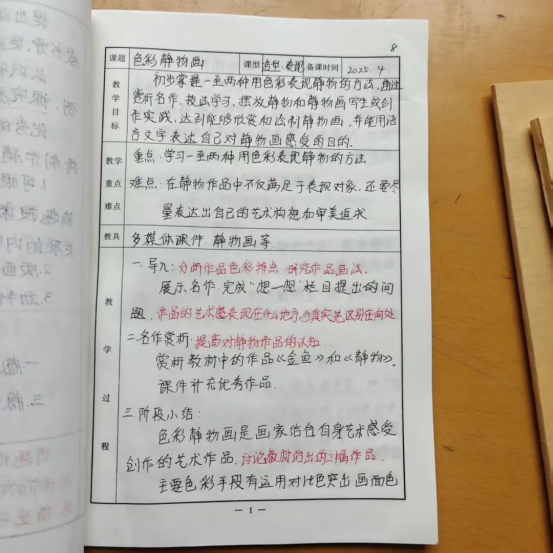 8
课题 色彩静物画 课型 造型·表现 备课时间 2025.4
教学目标 初步掌握一至两种用色彩表现静物的方法,通过
赏析名作、技法学习、摆放静物和静物画写生或创
作实践,达到能够欣赏和绘制静物画,并使用语
言文字表达自己对静物画感受的目的.
教学重点难点 重点:学习一至两种用色彩表现静物的方法
难点:在静物作品中不仅满足于表现对象,还要尽
量表达出自己的艺术构想和审美追求.
教具 多媒体课件.静物画等.
教学过程 一.导入:分析作品色彩特点 研究作品画法.
展示名作.完成"想一想"栏目提出的问
题.作品的艺术感表现在什么地方,与真实差别在何处
二.名作赏析:提高对静物作品的认知
赏析教材中的作品《金鱼》和《静物》。
课件补充优秀作品.
三.阶段小结:
色彩静物画是画家结合自身艺术感受
创作的艺术作品.讨论教材给出的二幅作品.
主要色彩手段有运用对比色突出画面色
— 1 —